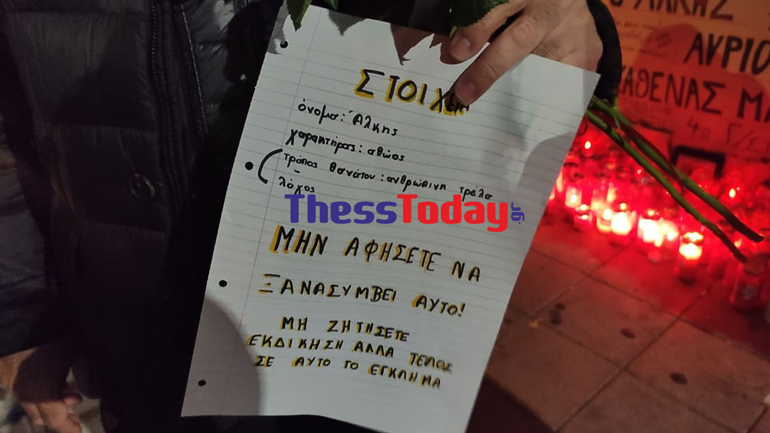 ΣΤΟΙΧ
όνομα: Άλκης
χαρακτήρας: αθώος
τρόπος θανάτου: ανθρώπινη τρέλα
λόγος
ThessToday.gr
ΜΗΝ ΑΦΗΣΕΤΕ ΝΑ
ΞΑΝΑΣΥΜΒΕΙ ΑΥΤΟ!
ΜΗ ΖΗΤΗΣΕΤΕ
ΕΚΔΙΚΗΣΗ ΑΛΛΑ ΤΕΛΟΣ
ΣΕ ΑΥΤΟ ΤΟ ΕΓΚΛΗΜΑ
ΑΛΚΗΣ
ΑΥΡΙΟ
ΚΑΘΕΝΑΣ ΜΑ